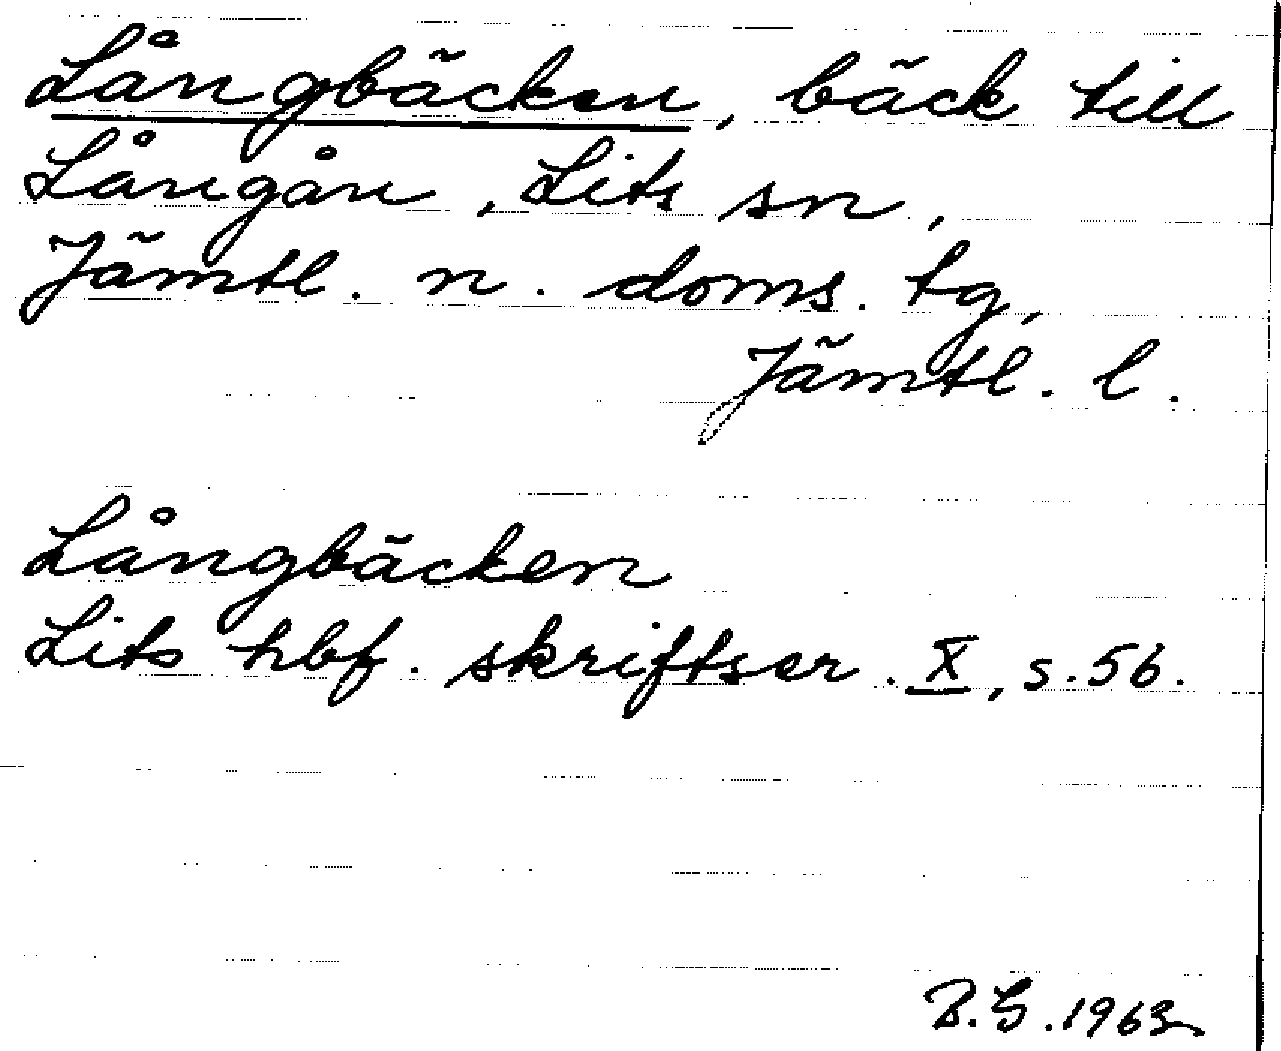 Långbäcken, bäck till
Långån, Lits sn,
Jämtl. n. doms. tg,
Jämtl. l.
Långbäcken
Lits hbf. skriftser. X, s. 56.
B.G. 1963